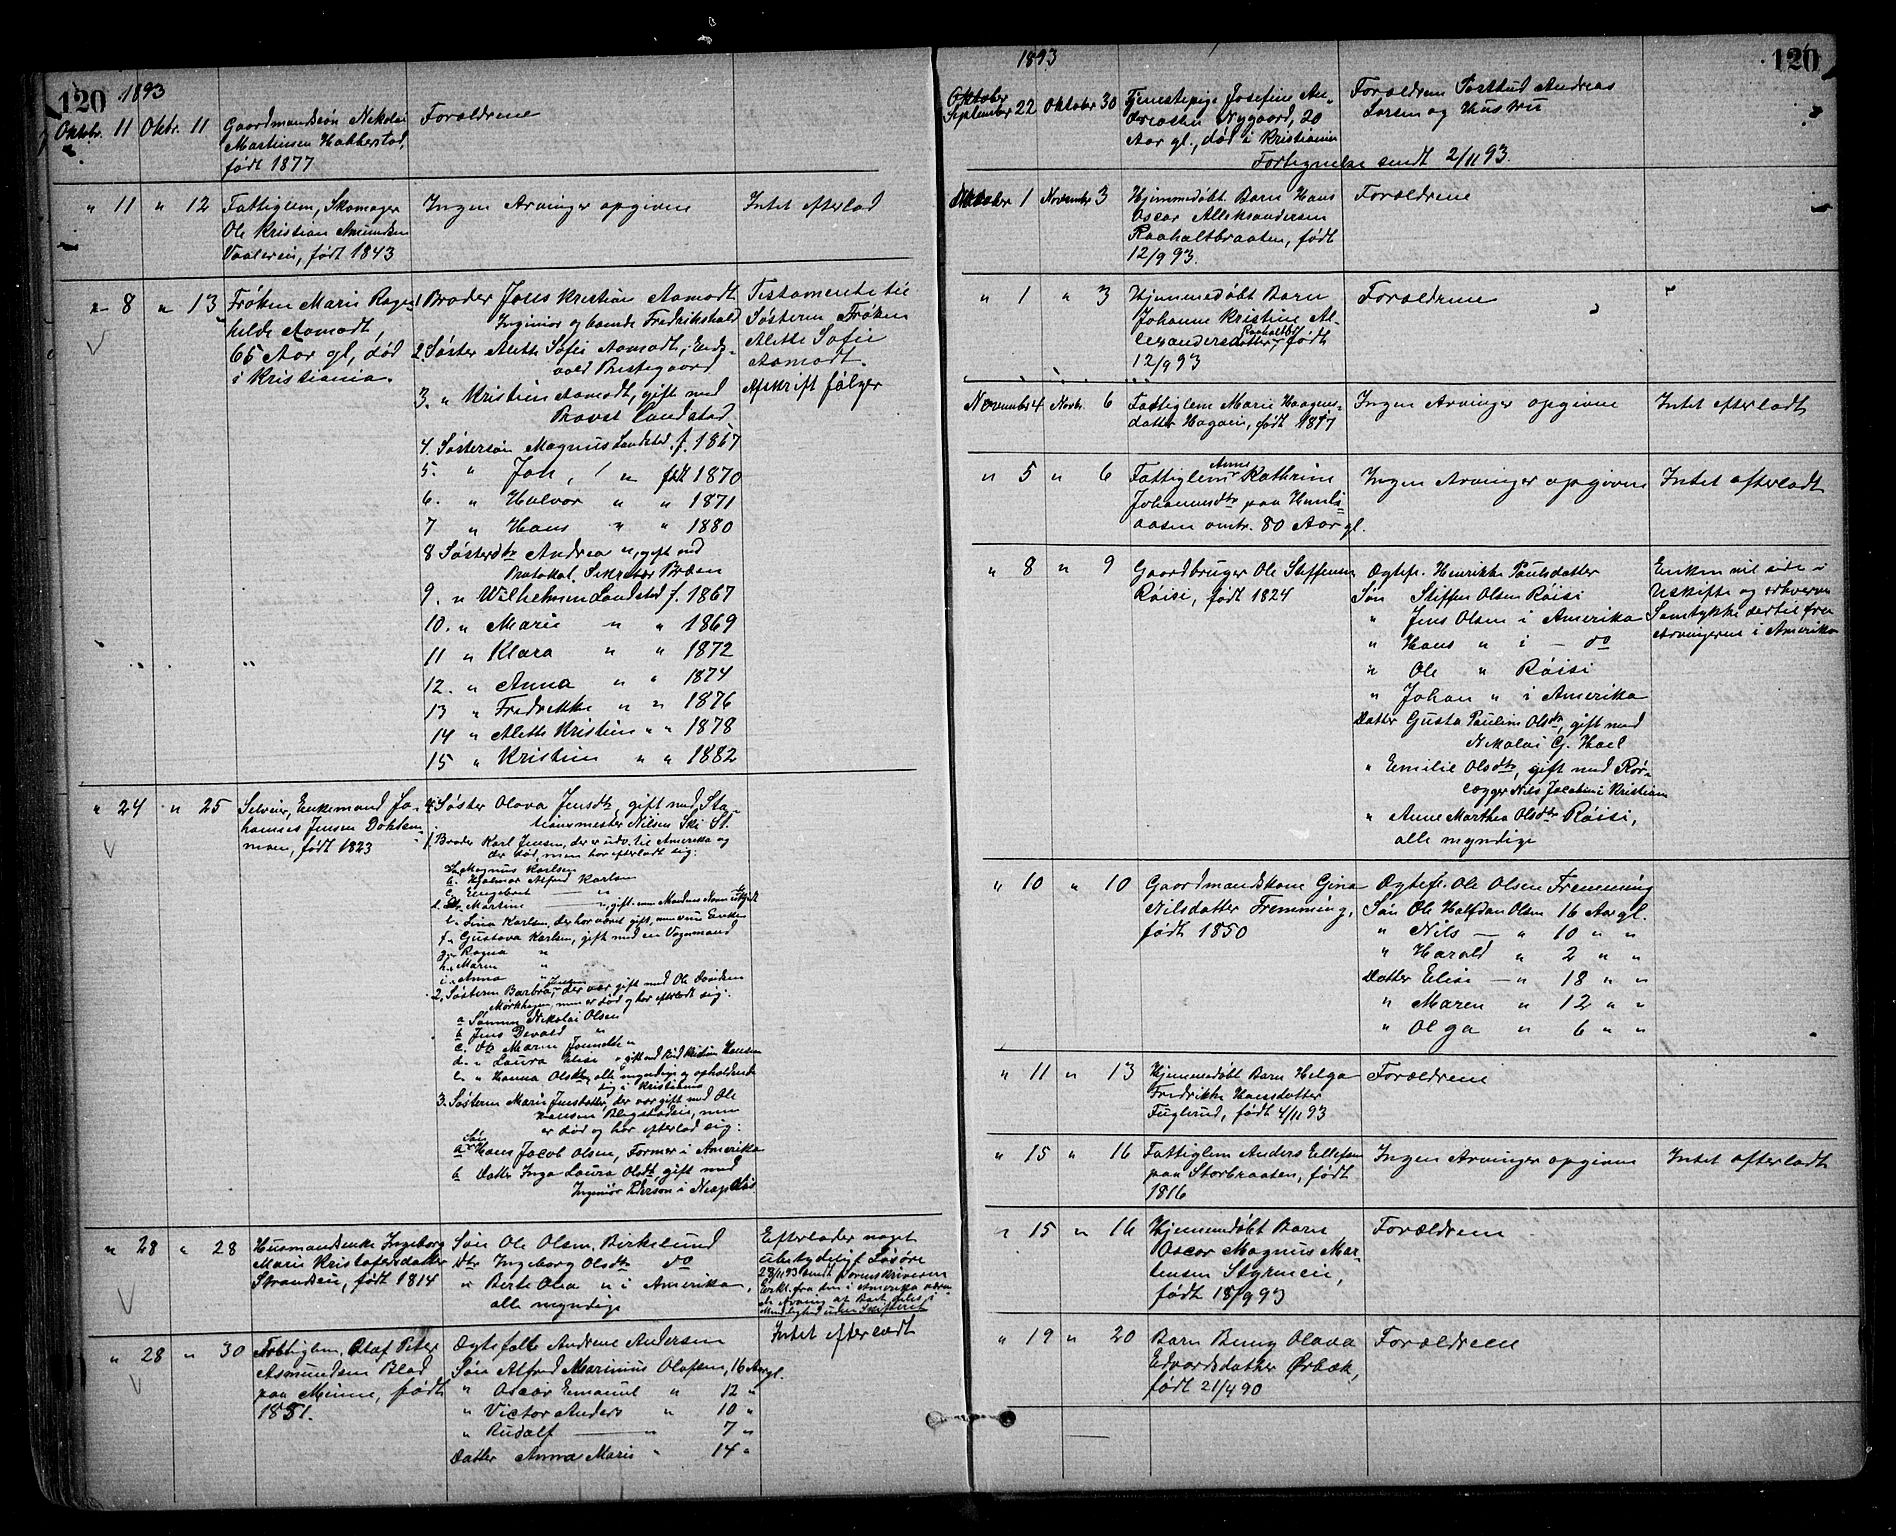 120 1893
Oktbr. 11 Oktr. 11 Gaardmandssøn Nikolai Forældrene
Martinsen Hakkerstad,
født 1877
" 11 " 12 Fattiglem, Skomager Ingen Arvinger opgivne Intet efterlad
Ole Kristian Amundsen
født 1843
" 8 " 13 Frøken Marie Ragn-
hilde Aamodt,
65 Aar gl, død
i Kristiania.
1 Broder Jens Kristian Aamodt
Ingeniør og boende Fredrikshald
2. Søster Alette Sofie Aamodt, Eids-
vold Prestegaard
3. " Kristine Aamodt, gift med
Provst Landstad
4. Søstersøn Magnus Landstad f. 1867
5. " Joh, " født 1870
6. " Halvor " " 1871
7 " Hans " " 1880
8 Søsterdtr Andrea ", gift med
Protokol. Sekretær Bræen
9. " Wilhelmine Landstad f. 1867
10. " Marie " " 1869
11 " Klara " " 1872
12. " Anna " " 1874
13 " Fredrikke " " 1876
14 " Alette Kristine " " 1878
15 " Kristine " " 1882
Testamente til
Søsteren Frøken
Alette Sofie
Aamodt.
Afskrift følger
" 24 " 25 Selveier, Enkemand Jo-
hannes Jensen Dokken-
moen, født 1823
4. Søster Olava Jensdtr, gift med Sta-
tionsmester Nilsen Ski St.
1. Broder Karl Jensen, der er udv. til Amerika og
der død, men har efterladt sig:
a. Magnus Karlsen
b. Hjalmar Alfred Karlsen
c. Engebret — "
d. Dtr. Martine — ", gift, men Mandens Navn
e. " Lina Karlsen, der har været gift, men nu Enke
f. " Gustava Karlsen, gift med en Vognmand
g. " Ragna "
h. " Maren "
i. " Anna "
2. Søsteren Barbra Jensen, der var gift med Ole Davidsen
Mørkhagen, men er død og har efterladt sig:
a Sønnen Nikolai Olsen
b Jens "
c. Dtr Maren "
d. " Laura Elise ", gift med Kristian Hansen
e. " Hanna Olsdtr, alle myndige og opholdende
sig i Kristiania
3. Søsteren Marie Jensdatter, der var gift med Ole
Hansen men
er død og har efterlad sig:
a Søn Hans Jacob Olsen, Former i Amerika
b Datter Inga Laura Olsdtr, gift med
Ingeniør i
" 28 " 28 Husmandsenke Ingeborg
Marie Kristofersdatter
Stranden, født 1814
Søn Ole Olsen Birkelund
Dtr Ingeborg Olsdtr do
" Berte Olia " i Amerika,
alle myndige
Efterlader noget
ubetydeligt Løsøre
28/11 93 sendt Sorenskriveren
Erkl. fra den i Amerika
" 28 " 30 Fattiglem, Olaf Peter
Asmundsen Blad
paa Minne, født
1851.
Ægtefælle Andrine Andersen
Søn Alfred Marinius Olafsen, 16 Aar gl.
" Oscar Emanuel " 12 "
" Victor Anders " 10 "
" Rudolf — " 7 "
Datter Anna Marie " 14 "
Intet efterladt
1893 120
Oktober
September 22 Oktober 30 Tjenestepige Josefine An-
dreasen Nygaard, 20
Aar gl., død i Kristiania
Forældrene Postbud Andreas
Larsen og Hustru
Fortegnelse sendt 2/11 93.
Oktober 1 November 3 Hjemmedøbt Barn Hans
Oscar Alleksandersen
Raaholtbraaten, født
12/9 93.
Forældrene
" 1 " 3 Hjemmedøbt Barn
Johanne Kristine Al-
lexandersdatter Raaholtbr, født
12/9 93
Forældrene
November 4 Novbr. 6 Fattiglem Marie Haagens-
datter Hagaen, født 1817
Ingen Arvinger opgivne Intet efterladt
" 5 " 6 Fattiglem Anne Kathrine
Johannesdtr paa
aasen omtr. 80 Aar gl.
Ingen Arvinger opgivne Intet efterladt
" 8 " 9 Gaardbruger Ole Steffensen
Røisi, født 1824
Ægtef. Henrikke Paulsdatter
Søn Steffen Olsen Røisi
" Jens Olsen i Amerika
" Hans " i — do
" Ole " Røisi
" Johan " i Amerika
Datter Gusta Pauline Olsdtr, gift med
Nikolai G. Hoel
" Emilie Olsdtr, gift med Rør-
lægger Nils Jacobsen i Kristiania
" Anne Marthea Olsdtr Røisi,
alle myndige
Enken vil side i
Uskifte og erhverve
Samtykke dertil fra
Arvingerne i Amerika
" 10 " 10 Gaardmandskone Gina
Nilsdatter Fremming,
født 1850
Ægtef. Ole Olsen Fremming
Søn Ole Halfdan Olsen 16 Aar gl.
" Nils — " 10 " "
" Harald " 2 " "
Datter Elise — " 18 " "
" Maren " 12 " "
" Olga " 6 " "
" 11 " 13 Hjemmedøbt Barn Helga
Fredrikke Hansdatter
Fuglerud, født 4/11 93
Forældrene
" 15 " 16 Fattiglem Anders Ellefsen
paa Storbraaten, født
1816
Ingen Arvinger opgivne Intet efterladt
" 15 " 16 Hjemmedøbt Barn
Oscar Magnus Mar-
tensen Styrmoen,
født 18/9 93
Forældrene
" 19 " 20 Barn Benny Olava
Edvardsdatter Ørbæk,
født 21/4 90
Forældrene